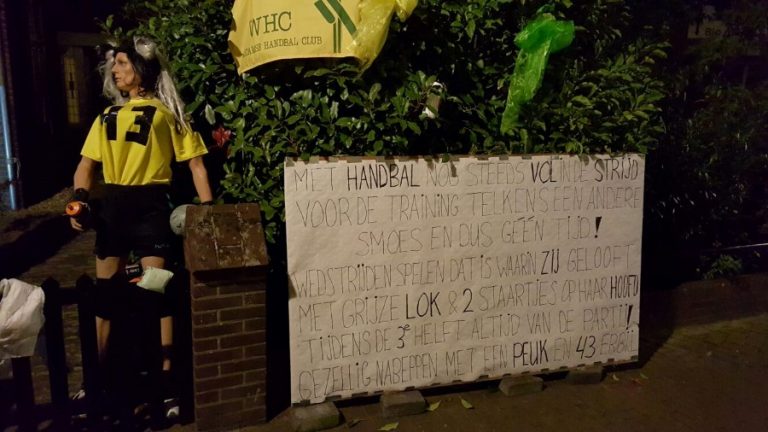 WHC
HANDBAL CLUB
43
MET HANDBAL NOG STEEDS VOL IN DE STRIJD
VOOR DE TRAINING TELKENS EEN ANDERE
SMOES EN DUS GÉÉN TIJD!
WEDSTRIJDEN SPELEN DAT IS WAARIN ZIJ GELOOFT
MET GRIJZE LOK & 2 STAARTJES OP HAAR HOOFD
TIJDENS DE 3e HELFT ALTIJD VAN DE PARTIJ!
GEZELLIG NABEPPEN MET EEN PEUK EN 43 ERBIJ